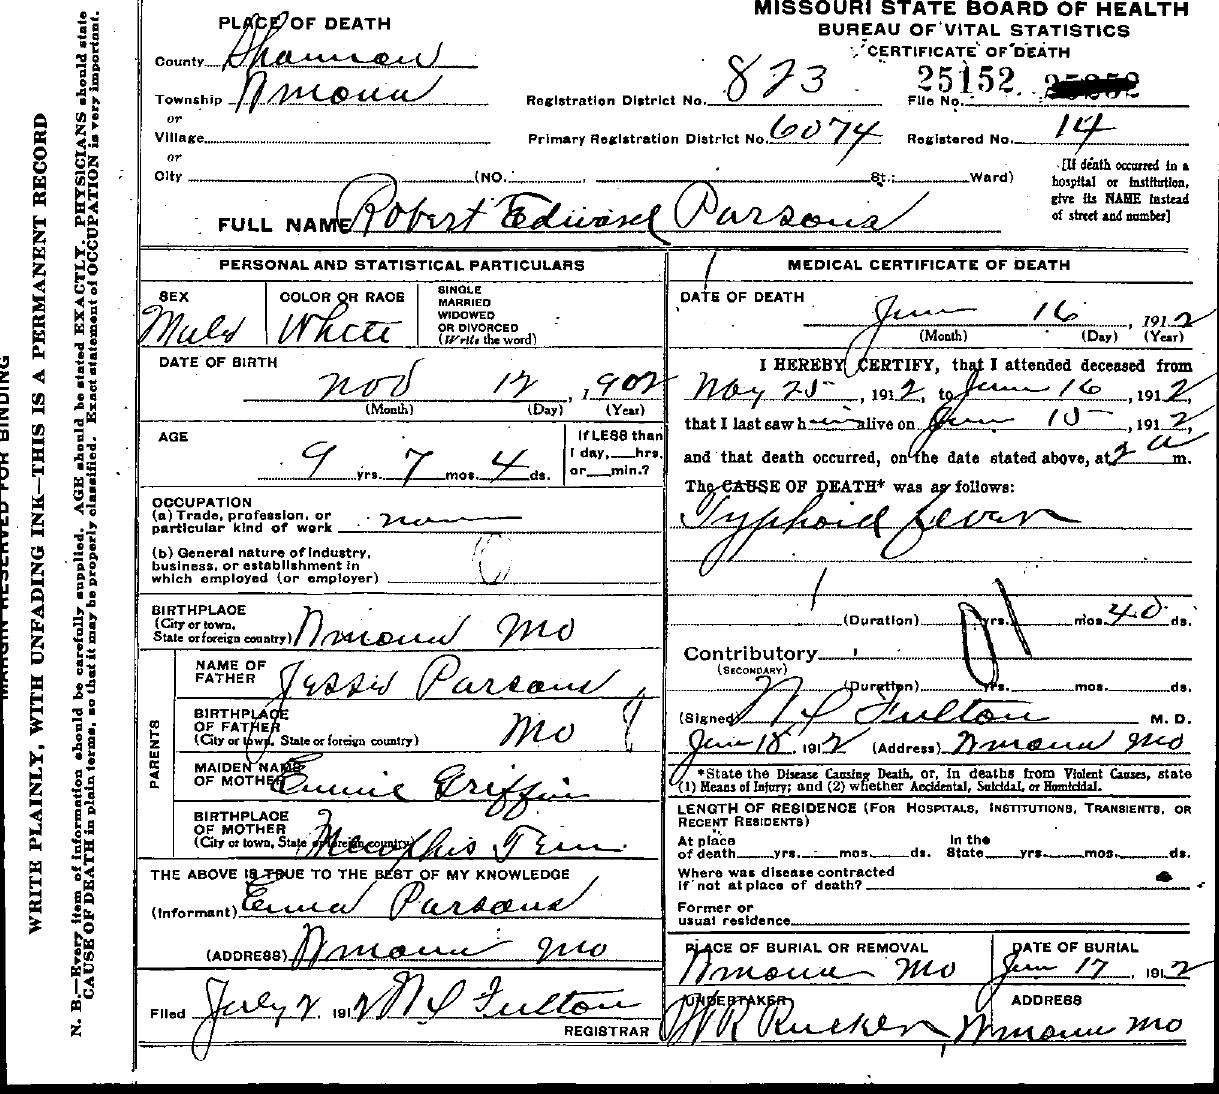 MISSOURI STATE BOARD OF HEALTH
BUREAU OF VITAL STATISTICS
CERTIFICATE OF DEATH
PLACE OF DEATH
County Shannon
Township
or
Village
or
City (NO. St.; Ward)
Registration District No. 873
File No. 25152
Primary Registration District No. 6074
Registered No. 14
[If death occurred in a
hospital or institution,
give its NAME instead
of street and number]
FULL NAME Robert Edward Parsons
PERSONAL AND STATISTICAL PARTICULARS
SEX
Male
COLOR OR RACE
White
SINGLE
MARRIED
WIDOWED
OR DIVORCED
(Write the word)
DATE OF BIRTH
Nov 12, 1902
(Month) (Day) (Year)
AGE
9 yrs. 7 mos. 4 ds.
If LESS than
1 day,___hrs.
or___min.?
OCCUPATION
(a) Trade, profession, or
particular kind of work none
(b) General nature of industry,
business, or establishment in
which employed (or employer)
BIRTHPLACE
(City or town,
State or foreign country) Mo
PARENTS
NAME OF
FATHER Jesse Parsons
BIRTHPLACE
OF FATHER
(City or town, State or foreign country) Mo
MAIDEN NAME
OF MOTHER Griffin
BIRTHPLACE
OF MOTHER
(City or town, State or foreign country) Memphis Tenn
THE ABOVE IS TRUE TO THE BEST OF MY KNOWLEDGE
(Informant) Parsons
(ADDRESS) Mo
Filed July 2 1912 Fulton
REGISTRAR
MEDICAL CERTIFICATE OF DEATH
DATE OF DEATH
June 16, 1912
(Month) (Day) (Year)
I HEREBY CERTIFY, that I attended deceased from
May 25, 1912, to June 16, 1912,
that I last saw him alive on June 15, 1912,
and that death occurred, on the date stated above, at 2 a m.
The CAUSE OF DEATH* was as follows:
Typhoid fever
(Duration) yrs. mos. 40 ds.
Contributory
(SECONDARY)
(Duration) yrs. mos. ds.
(Signed) Fulton M. D.
June 18, 1912 (Address) Mo
*State the Disease Causing Death, or, in deaths from Violent Causes, state
(1) Means of Injury; and (2) whether Accidental, Suicidal, or Homicidal.
LENGTH OF RESIDENCE (FOR HOSPITALS, INSTITUTIONS, TRANSIENTS, OR
RECENT RESIDENTS)
At place
of death yrs. mos. ds.
In the
State yrs. mos. ds.
Where was disease contracted
if not at place of death?
Former or
usual residence
PLACE OF BURIAL OR REMOVAL
Mo
DATE OF BURIAL
June 17, 1912
UNDERTAKER
Rucker
ADDRESS
Mo
MARGIN RESERVED FOR BINDING
WRITE PLAINLY, WITH UNFADING INK—THIS IS A PERMANENT RECORD
N. B.—Every item of information should be carefully supplied. AGE should be stated EXACTLY. PHYSICIANS should state
CAUSE OF DEATH in plain terms, so that it may be properly classified. Exact statement of OCCUPATION is very important.